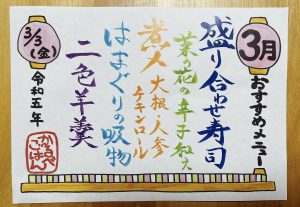 3月
おすすめメニュー
盛り合わせ寿司
菜の花の辛子和え
煮〆 大根・人参
チキンロール
はまぐりの吸物
二色羊羹
3/3(金)
令和五年
かるべ
ごはん